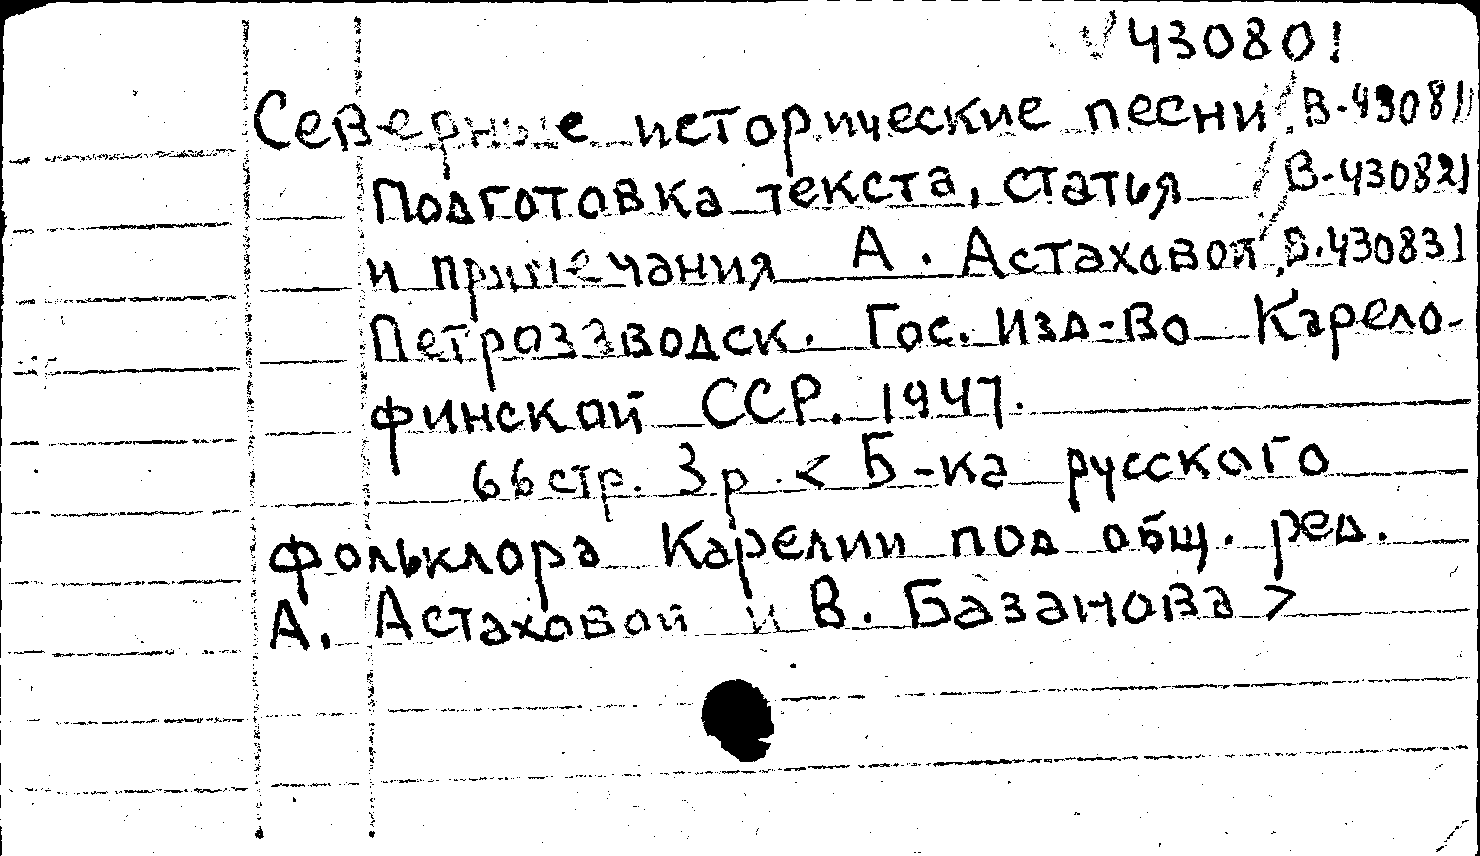 430801
Северные исторические песни В-430811
Подготовка текста, статья В-430821
и примечания А. Астаховой В.430831
Петрозаводск. Гос. Изд-во Карело-
финской ССР. 1947.
66 стр. 3 р. < Б-ка русского
фольклора Карелии под общ. ред.
А. Астаховой и В. Базанова >